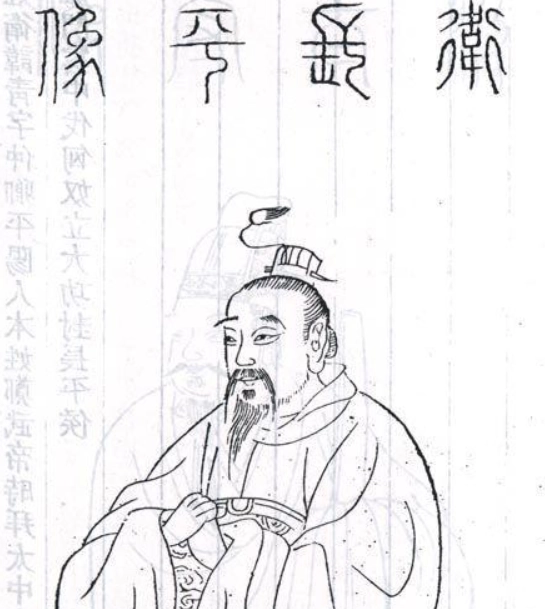 衛長平像
衛諱青字仲卿平陽人本姓鄭武帝時拜太中
伐匈奴立大功封長平侯